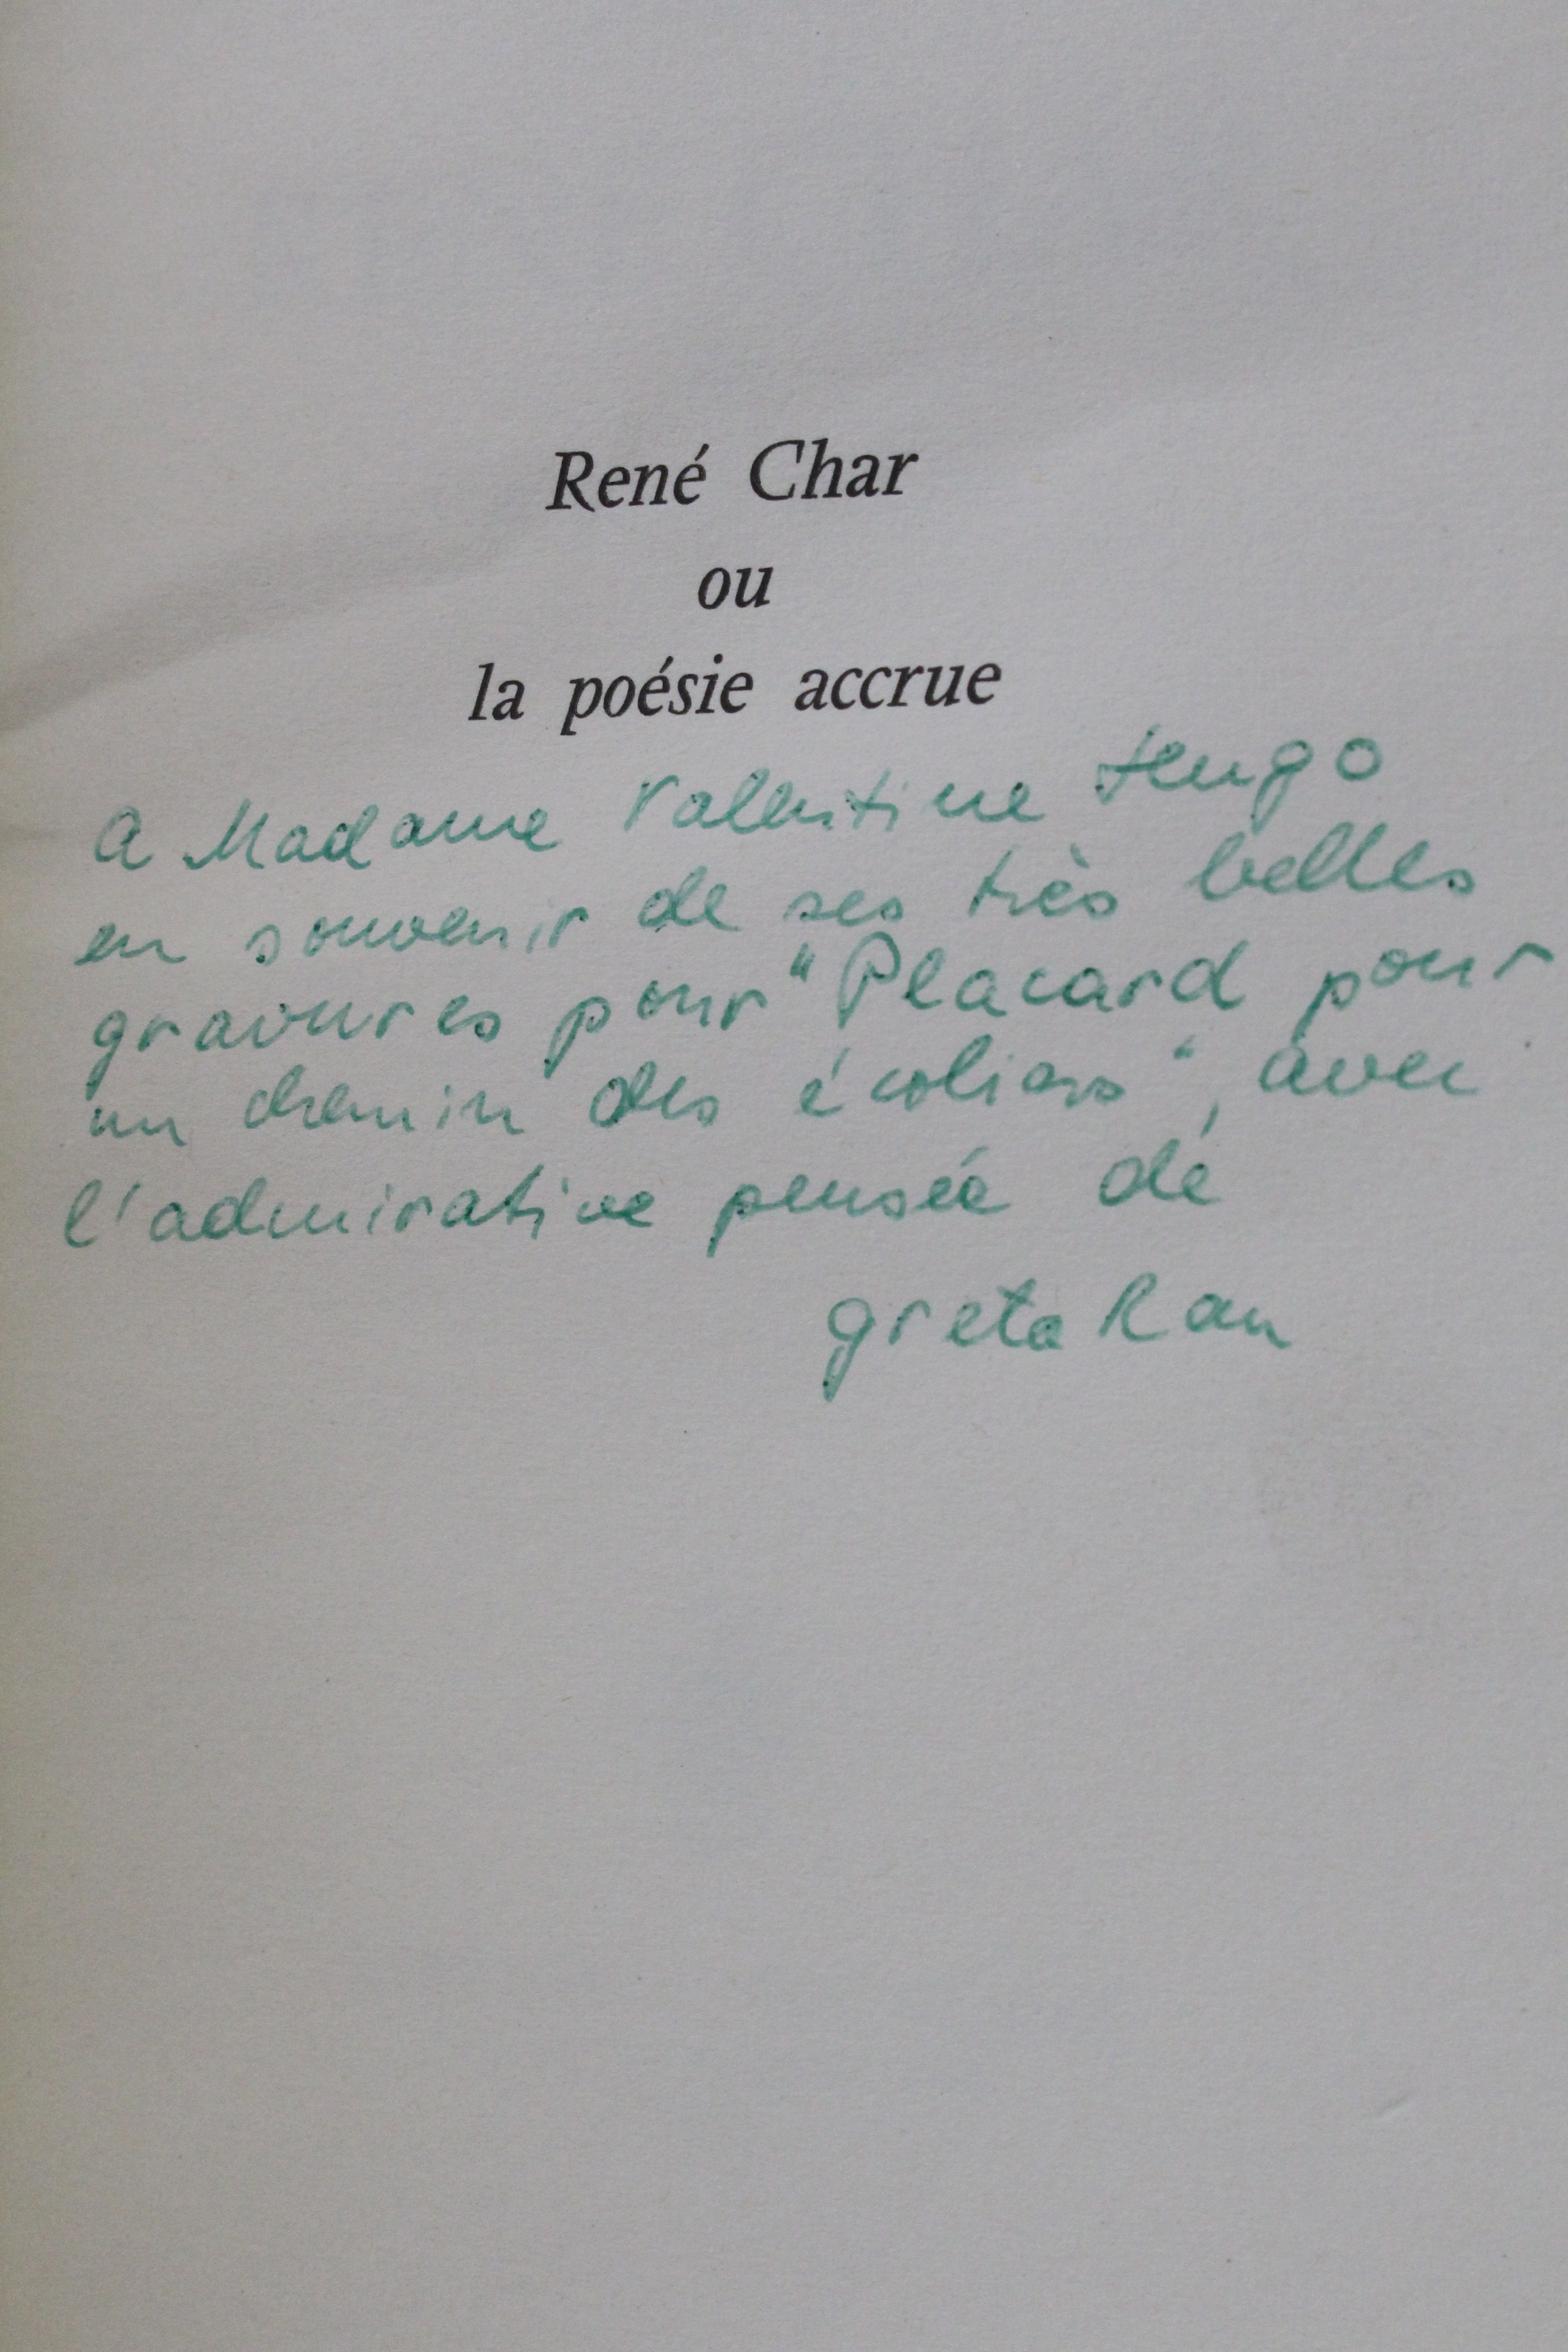 René Char
ou
la poésie accrue
A Madame Valentine Hugo
en souvenir de ses très belles
gravures pour "Placard pour
un chemin des écoliers", avec
l'admirative pensée de
greta Rau